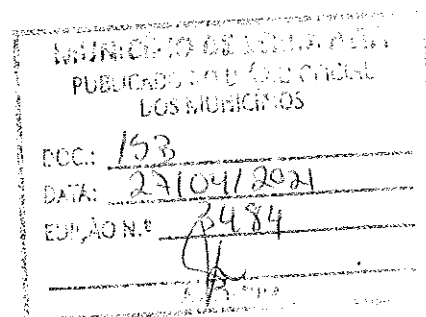 MUNICÍPIO DE
PUBLICADO NO DIÁRIO OFICIAL
DOS MUNICÍPIOS
DOC.: 153
DATA: 27/04/2021
EDIÇÃO N.º 3484